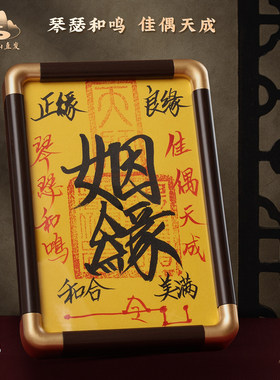 琴瑟和鸣 佳偶天成
正缘
良缘
琴瑟和鸣
姻缘
佳偶天成
和合
美满